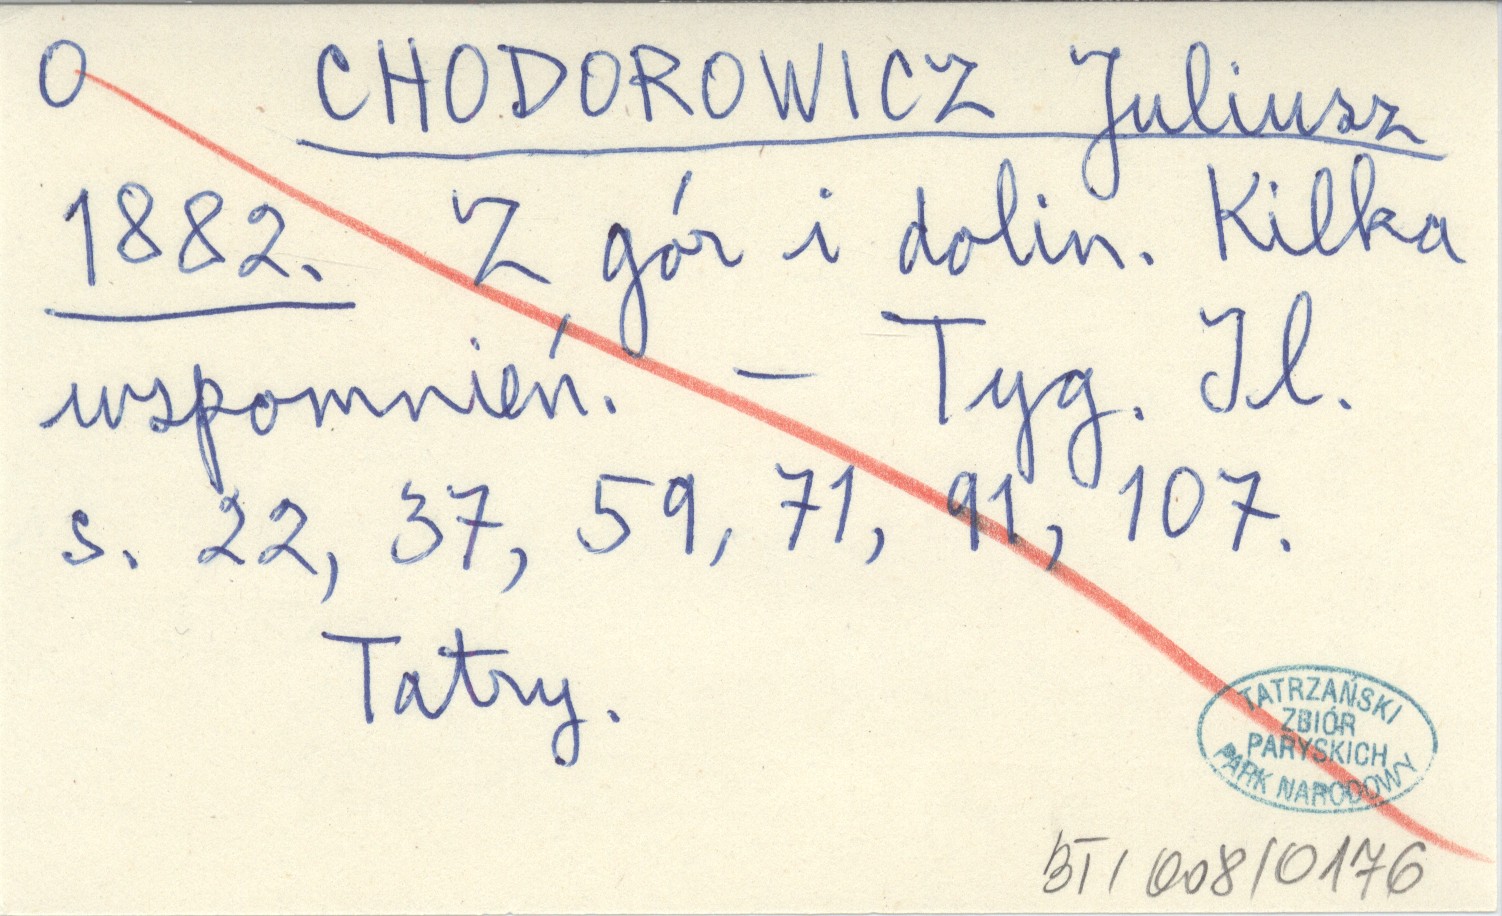 O CHODOROWICZ Juliusz
1882. Z gór i dolin. Kilka
wspomnień. – Tyg. Il.
s. 22, 37, 59, 71, 91, 107.
Tatry.
TATRZAŃSKI
ZBIÓR
PARYSKICH
PARK NARODOWY
BT/008/0176